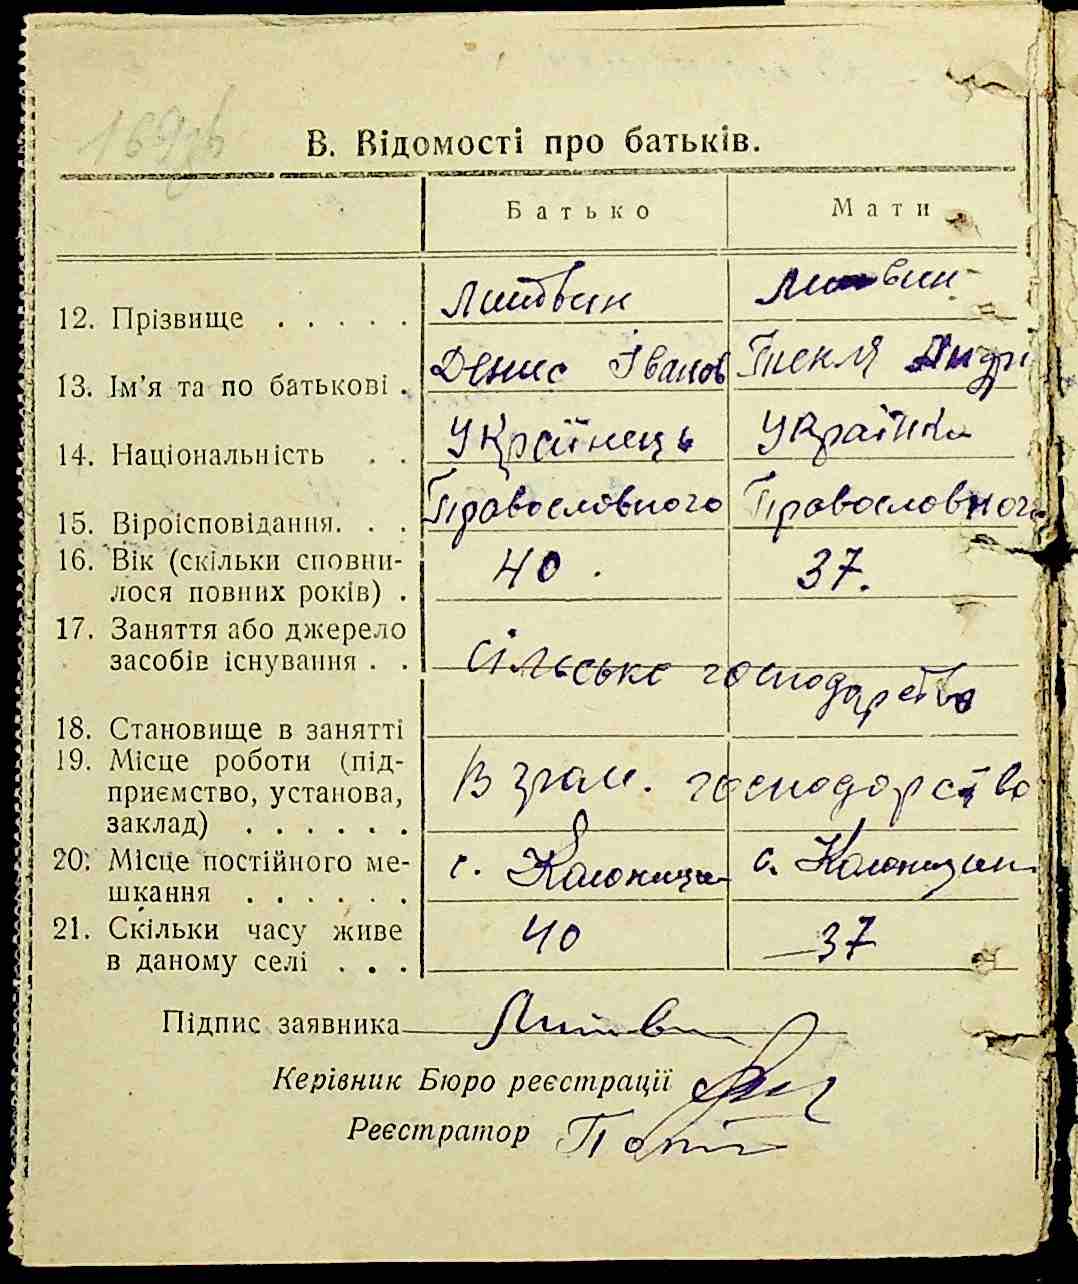 В. Відомості про батьків.
Батько Мати
12. Прізвище . . . . . Литвин Литвин
13. Ім'я та по батькові . Денис Іванов Текля Андрі
14. Національність . . Українець Українка
15. Віроісповідання. . . Православного Православного
16. Вік (скільки сповни-
лося повних років) . 40. 37.
17. Заняття або джерело
засобів існування . . сільське господарство
18. Становище в занятті
19. Місце роботи (під-
приємство, установа,
заклад) . . . . . . В гром. господарство
20. Місце постійного ме-
шкання . . . . . . с. с.
21. Скільки часу живе
в даному селі . . . 40 37
Підпис заявника Литвин
Керівник Бюро реєстрації
Реєстратор